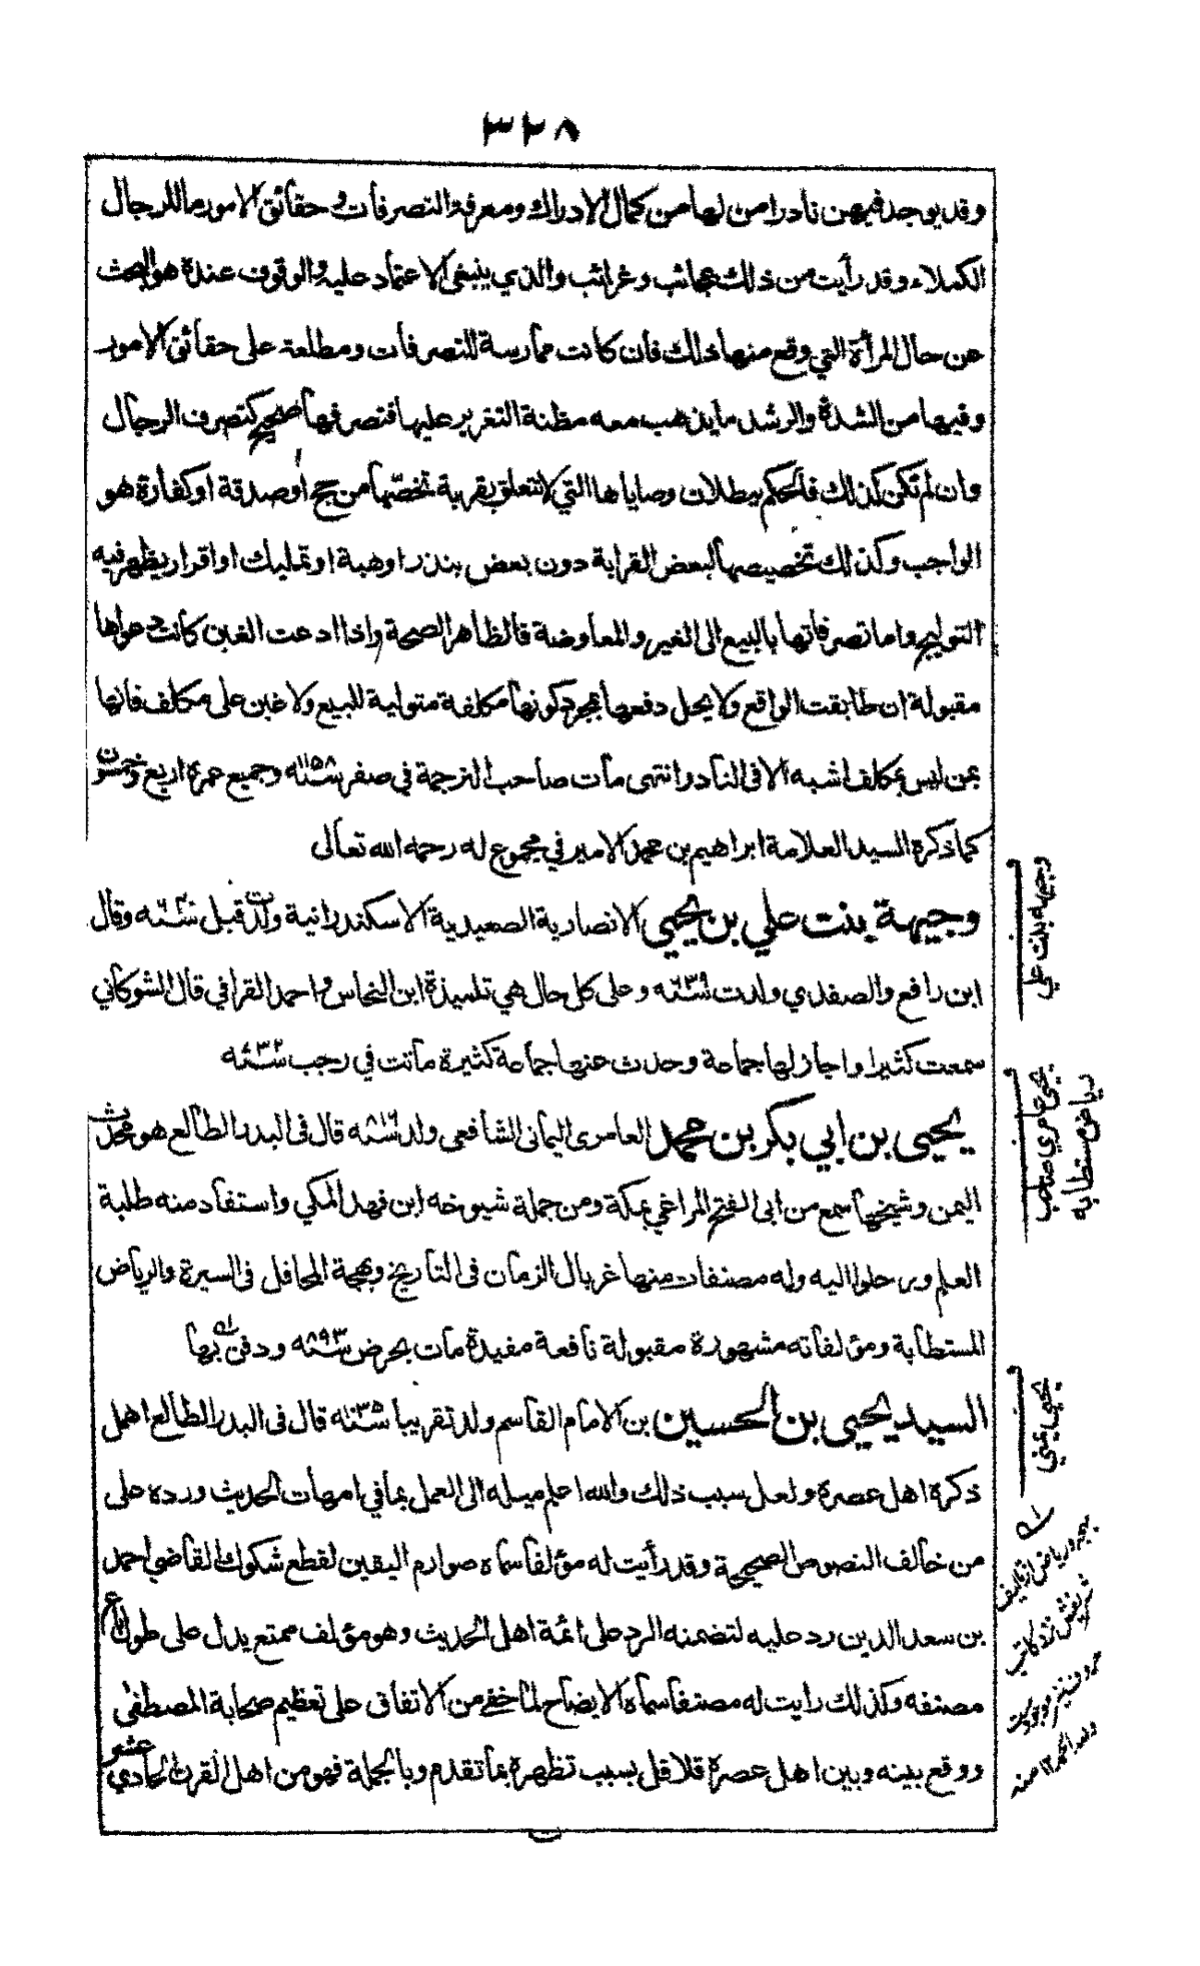 ٣٢٨
وقد يوجد فيهن نادرا من لها من كمال الادراك ومعرفة التصرفات وحقائق الامور ما للرجال
الكملاء وقد رأيت من ذلك عجائب وغرائب والذي ينبغي الاعتماد عليه والوقوف عنده هو البحث
عن حال المرأة التي وقع منها ذلك فان كانت ممارسة للتصرفات ومطلعة على حقائق الامور
وفيها من الشدة والرشد ما يذهب معه مظنة التغرير عليها فتصرفها صحيح كتصرف الرجال
وان لم تكن كذلك فالحكم ببطلان وصاياها التي لا تتعلق بقربة تخصّها من حج او صدقة او كفارة هو
الواجب وكذلك تخصيصها لبعض القرابة دون بعض بنذر او هبة او تمليك او اقرار يظهر فيه
التوليج واما تصرفاتها بالبيع الى الغير والمعاوضة فالظاهر الصحة واذا ادعت الغبن كانت دعواها
مقبولة ان طابقت الواقع ولا يحل دفعها بمجرد كونها مكلفة متولية للبيع ولا غبن على مكلف فانها
بمن ليس بمكلف اشبه الا في النادر انتهى مات صاحب الترجمة في صفر سنة ١١٥٨ وجميع عمره اربع وخمسون
كما ذكره السيد العلامة ابراهيم بن محمد الامير في مجموع له رحمه الله تعالى
وجيهة بنت علي بن يحيي الانصارية الصعيدية الاسكندرانية ولدت قبل سنة وقال
ابن رافع والصفدي ولدت سنة ٦٣٩ وعلى كل حال هي تلميذة ابن النحاس واحمد القرافي قال الشوكاني
سمعت كثيرا واجاز لها جماعة وحدث عنها جماعة كثيرة ماتت في رجب سنة ٧٣٢
يحيى بن ابي بكر بن محمد العامري اليماني الشافعي ولد سنة ٨١٦ قال في البدر الطالع هو محدث
اليمن وشيخها سمع من ابي الفتح المراغي بمكة ومن جملة شيوخه ابن فهد المكي واستفاد منه طلبة
العلم ورحلوا اليه وله مصنفات منها غربال الزمان في التاريخ وبهجة المحافل في السيرة والرياض
المستطابة ومؤلفاته مشهورة مقبولة نافعة مفيدة مات بحرض سنة ٨٩٣ ودفن بها
السيد يحيى بن الحسين بن الامام القاسم ولد تقريبا سنة ١٠٣٥ قال في البدر الطالع اهمل
ذكره اهل عصره ولعل سبب ذلك والله اعلم ميله الى العمل بما في امهات الحديث ورده على
من خالف النصوص الصحيحة وقد رأيت له مؤلفا سماه صوارم اليقين لقطع شكوك القاضي احمد
بن سعد الدين رد عليه لتضمنه الرد على ائمة اهل الحديث وهو مؤلف ممتع يدل على طول باع
مصنفه وكذلك رايت له مصنفا سماه الايضاح لما خفي من الاتفاق على تعظيم صحابة المصطفى
ووقع بينه وبين اهل عصره قلاقل بسبب تظهره بما تقدم وبالجملة فهو من اهل القرن الحادي عشر
وجيهه بنت علي
يحيى عامري صاحب
رياض مستطابه
يحيى يمني